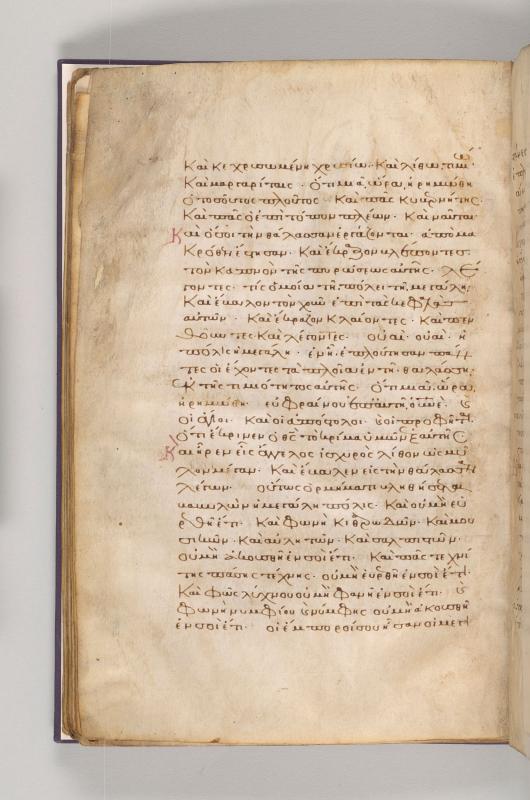 Καὶ κεχρυσωμένη χρυσίω· Καὶ λίθω τιμίω
Καὶ μαργαρίταις· ὅτι μιᾶ ὥρα ἠρημώθη
ὁ τοσοῦτος πλοῦτος· Καὶ πᾶς κυβερνήτης·
Καὶ πᾶς ὁ ἐπὶ τόπον πλέων· Καὶ ναῦται·
Καὶ ὅσοι τὴν θάλασσαν ἐργάζονται· ἀπὸ μα
κρόθεν ἔστησαν· Καὶ ἔκραζον βλέποντες
τὸν καπνὸν τῆς πυρώσεως αὐτῆς· λέ
γοντες· τίς ὁμοία τῆ πόλει τῆ μεγάλη·
Καὶ ἔβαλον χοῦν ἐπὶ τὰς κεφαλὰς
αὐτῶν· Καὶ ἔκραζον κλαίοντες· Καὶ πεν
θοῦντες καὶ λέγοντες· οὐαὶ οὐαὶ· ἡ
πόλις ἡ μεγάλη· ἐν ἧ ἐπλούτησαν πάν
τες οἱ ἔχοντες τὰ πλοῖα ἐν τῆ θαλάσση·
ἐκ τῆς τιμιότητος αὐτῆς· ὅτι μιᾶ ὥρα
ἠρημώθη· εὐφραίνου ἐπ' αὐτῆ οὐρανέ· καὶ
οἱ ἅγιοι· Καὶ οἱ ἀπόστολοι· καὶ οἱ προφῆται
ὅτι ἔκρινεν ὁ θς τὸ κρίμα ὑμῶν ἐξ αὐτῆς
Καὶ ἦρεν εἷς ἄγγελος ἰσχυρὸς λίθον ὡς μύ
λον μέγαν· Καὶ ἔβαλεν εἰς τὴν θάλασσαν
λέγων· οὕτως ὁρμήματι βληθήσεται
βαβυλὼν ἡ μεγάλη πόλις· Καὶ οὐ μὴ εὑ
ρεθῆ ἔτι· Καὶ φωνὴ κιθαρωδῶν· Καὶ μου
σικῶν· Καὶ αὐλητῶν· Καὶ σαλπιστῶν·
οὐ μὴ ἀκουσθῆ ἐν σοὶ ἔτι· Καὶ πᾶς τεχνί
της πάσης τέχνης· οὐ μὴ εὑρεθῆ ἐν σοὶ ἔτι·
Καὶ φῶς λύχνου οὐ μὴ φανῆ ἐν σοὶ ἔτι· καὶ
φωνὴ νυμφίου καὶ νύμφης οὐ μὴ ἀκουσθῆ
ἐν σοὶ ἔτι· οἱ ἔμποροί σου ἦσαν οἱ μεγι